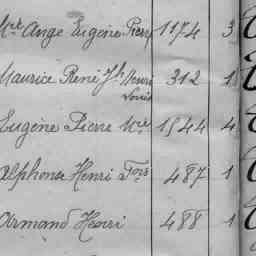 Mie Ange Eugène Pierre 1174 3
Maurice René Jh Henri 312 1
Louis
Eugène Pierre Mie 1544 4
Alphonse Henri Fois 487 1
Armand Henri 488 1